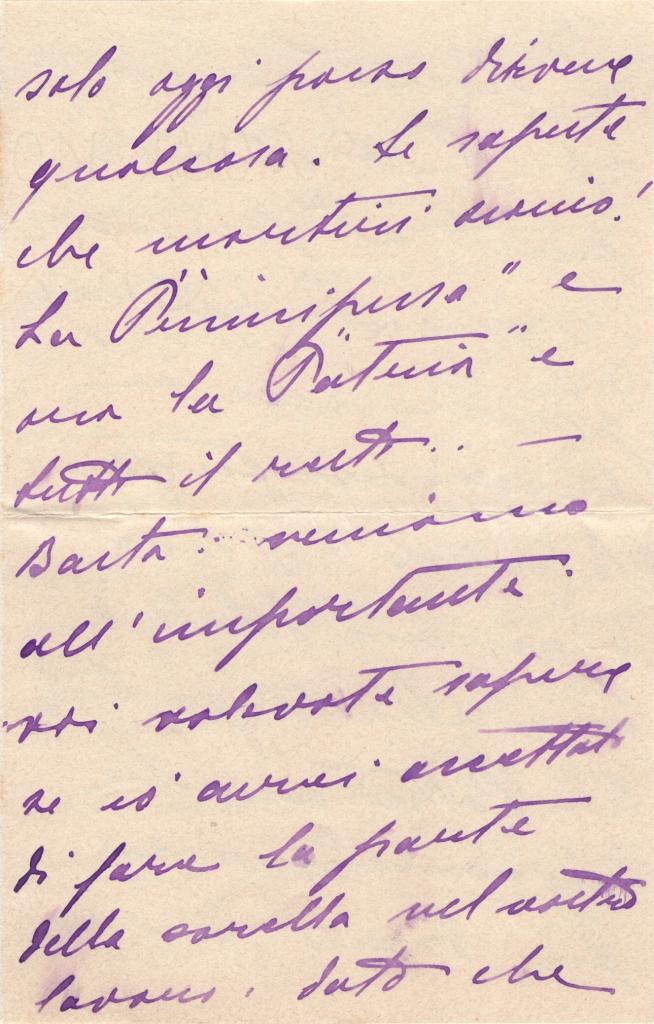 solo oggi posso dirvene
qualcosa. Se sapeste
che martirii siamo!
La "Principessa" e
ora la "Patria" e
tutto il resto.. —
Basta: veniamo
all'importante.
Voi volevate sapere
se io avrei accettato
di fare la parte
della sorella nel vostro
lavoro. Dato che